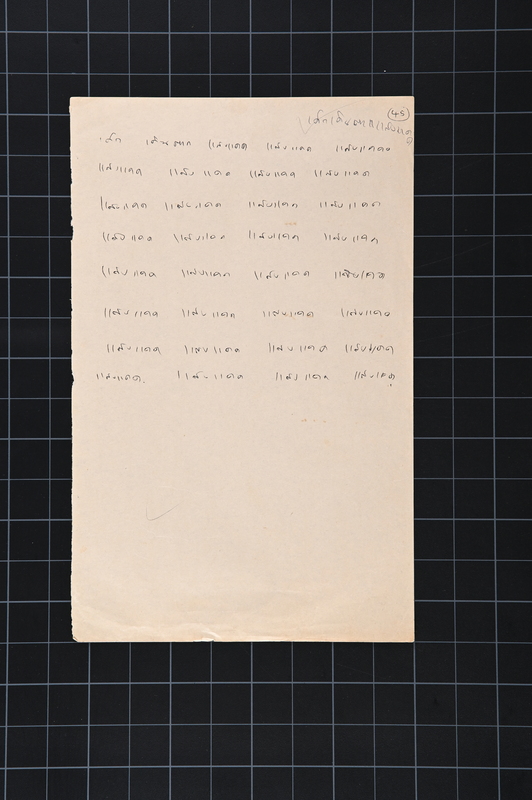 45
เด็กเดินตากแสงแดด
เด็ก เดินตาก แสงแดด แสงแดด แสงแดด
แสงแดด แสงแดด แสงแดด แสงแดด
แสงแดด แสงแดด แสงแดด แสงแดด
แสงแดด แสงแดด แสงแดด แสงแดด
แสงแดด แสงแดด แสงแดด แสงแดด
แสงแดด แสงแดด แสงแดด แสงแดด
แสงแดด แสงแดด แสงแดด แสงแดด
แสงแดด แสงแดด แสงแดด แสงแดด